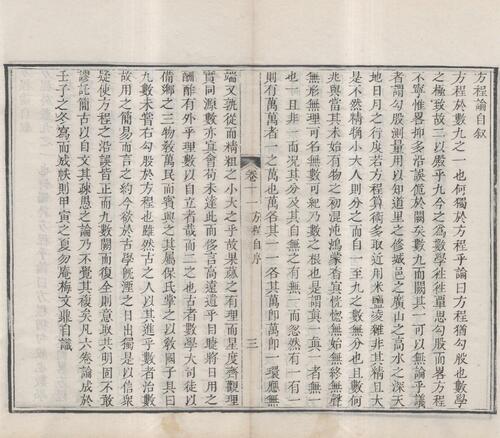 方程論自叙
方程於數九之一也何獨於方程乎論曰方程猶勾股也數學
之極致故二以殿乎九今之為數學徃徃單思勾股而畧方程
不寧惟畧抑多沿誤俛於闕矣數九而闕其一可以無論乎議
者謂勾股測量用以知道里之修城邑之廣山之高水之深天
地日月之行度若方程算術多取近用米鹽凌雜非其精且大
是不然精稱小大人則分之而自一至九之數無分也且數何
兆與當其未始有物之初混沌鴻蒙杳冥恍惚無始無終無聲
無形無理可名無數可紀乃數之根也是謂真一真一者無一
也一且非一而況其分及其自無之有無三而忽然有一有一
則有萬萬者一之萬也萬各其一一各其萬即萬即一環應無
端又孰從而精粗之小大之乎故果蓏之有理而星度齊觀理
實同源數亦冥會苟未達此而侈言高遠遺乎目睫將日用之
酬酢有外乎理數以自立者哉而二之也古者數學大司徒以
備鄉之三物敎萬民而賓興之其屬保氏掌之以敎國子其曰
九數未嘗右勾股於方程也雖然古之人以其進乎數者治數
故用之簡易而言之約今欲於古學旣湮之日出獨是以信衆
疑使方程之沿誤皆正而九數闕而復全則意取共明固不敢
謬託簡古以自文其疎愚之論乃不覺其複矣凡六卷論成於
壬子之冬寫而成帙則甲寅之夏勿庵梅文鼎自識
卷十一
方程自序
三